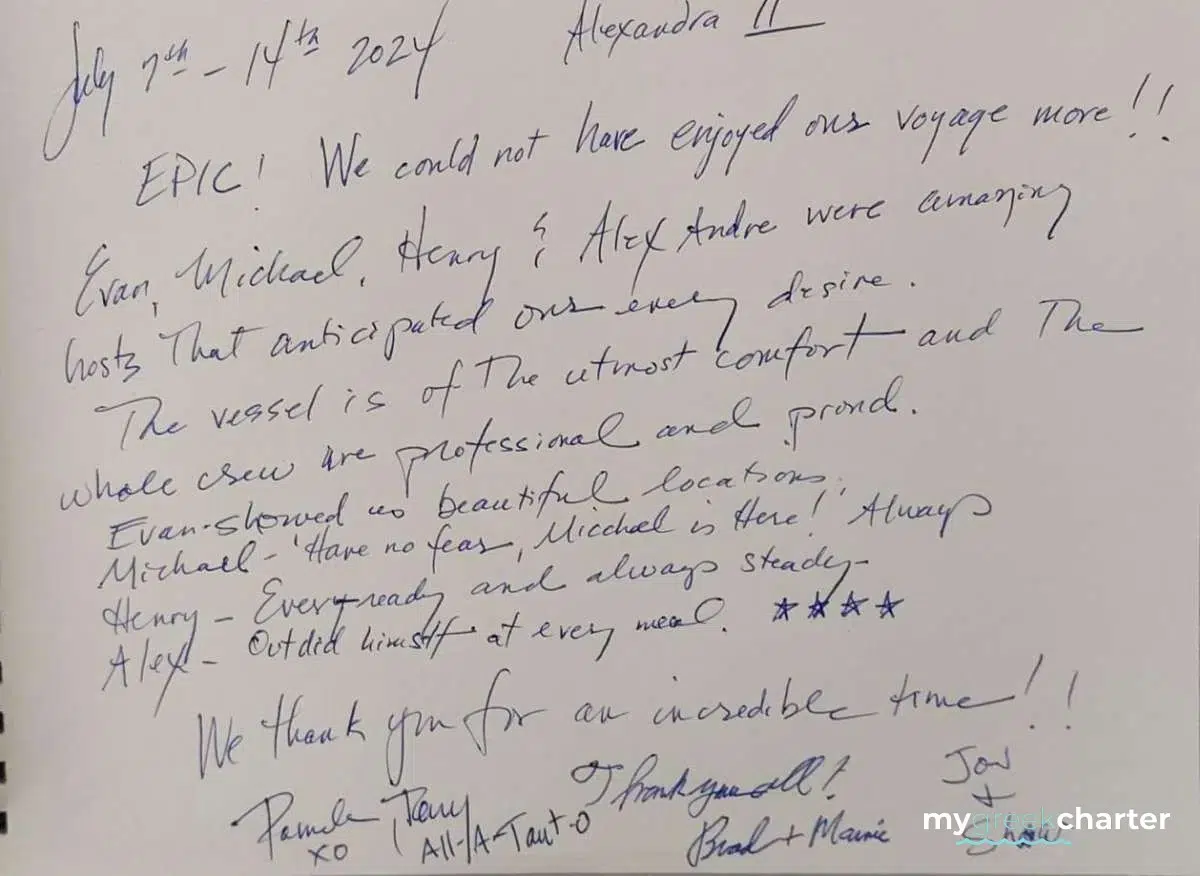 July 7th - 14th 2024 Alexandra II
EPIC! We could not have enjoyed our voyage more!!
Evan, Michael, Henry & Alex Andre were amazing
hosts That anticipated our every desire.
The vessel is of The utmost comfort and The
whole crew are professional and proud.
Evan - showed us beautiful locations.
Michael - 'Have no fear, Micchael is Here!' Always
Henry - Everyready and always steady -
Alex - Outdid himself at every meal. ★ ★ ★ ★
We thank you for an incredible time!!
Pamela Terry Thank you all! Jon
xo All-A-Taut-O Brad + Marnie +
mygreekcharter